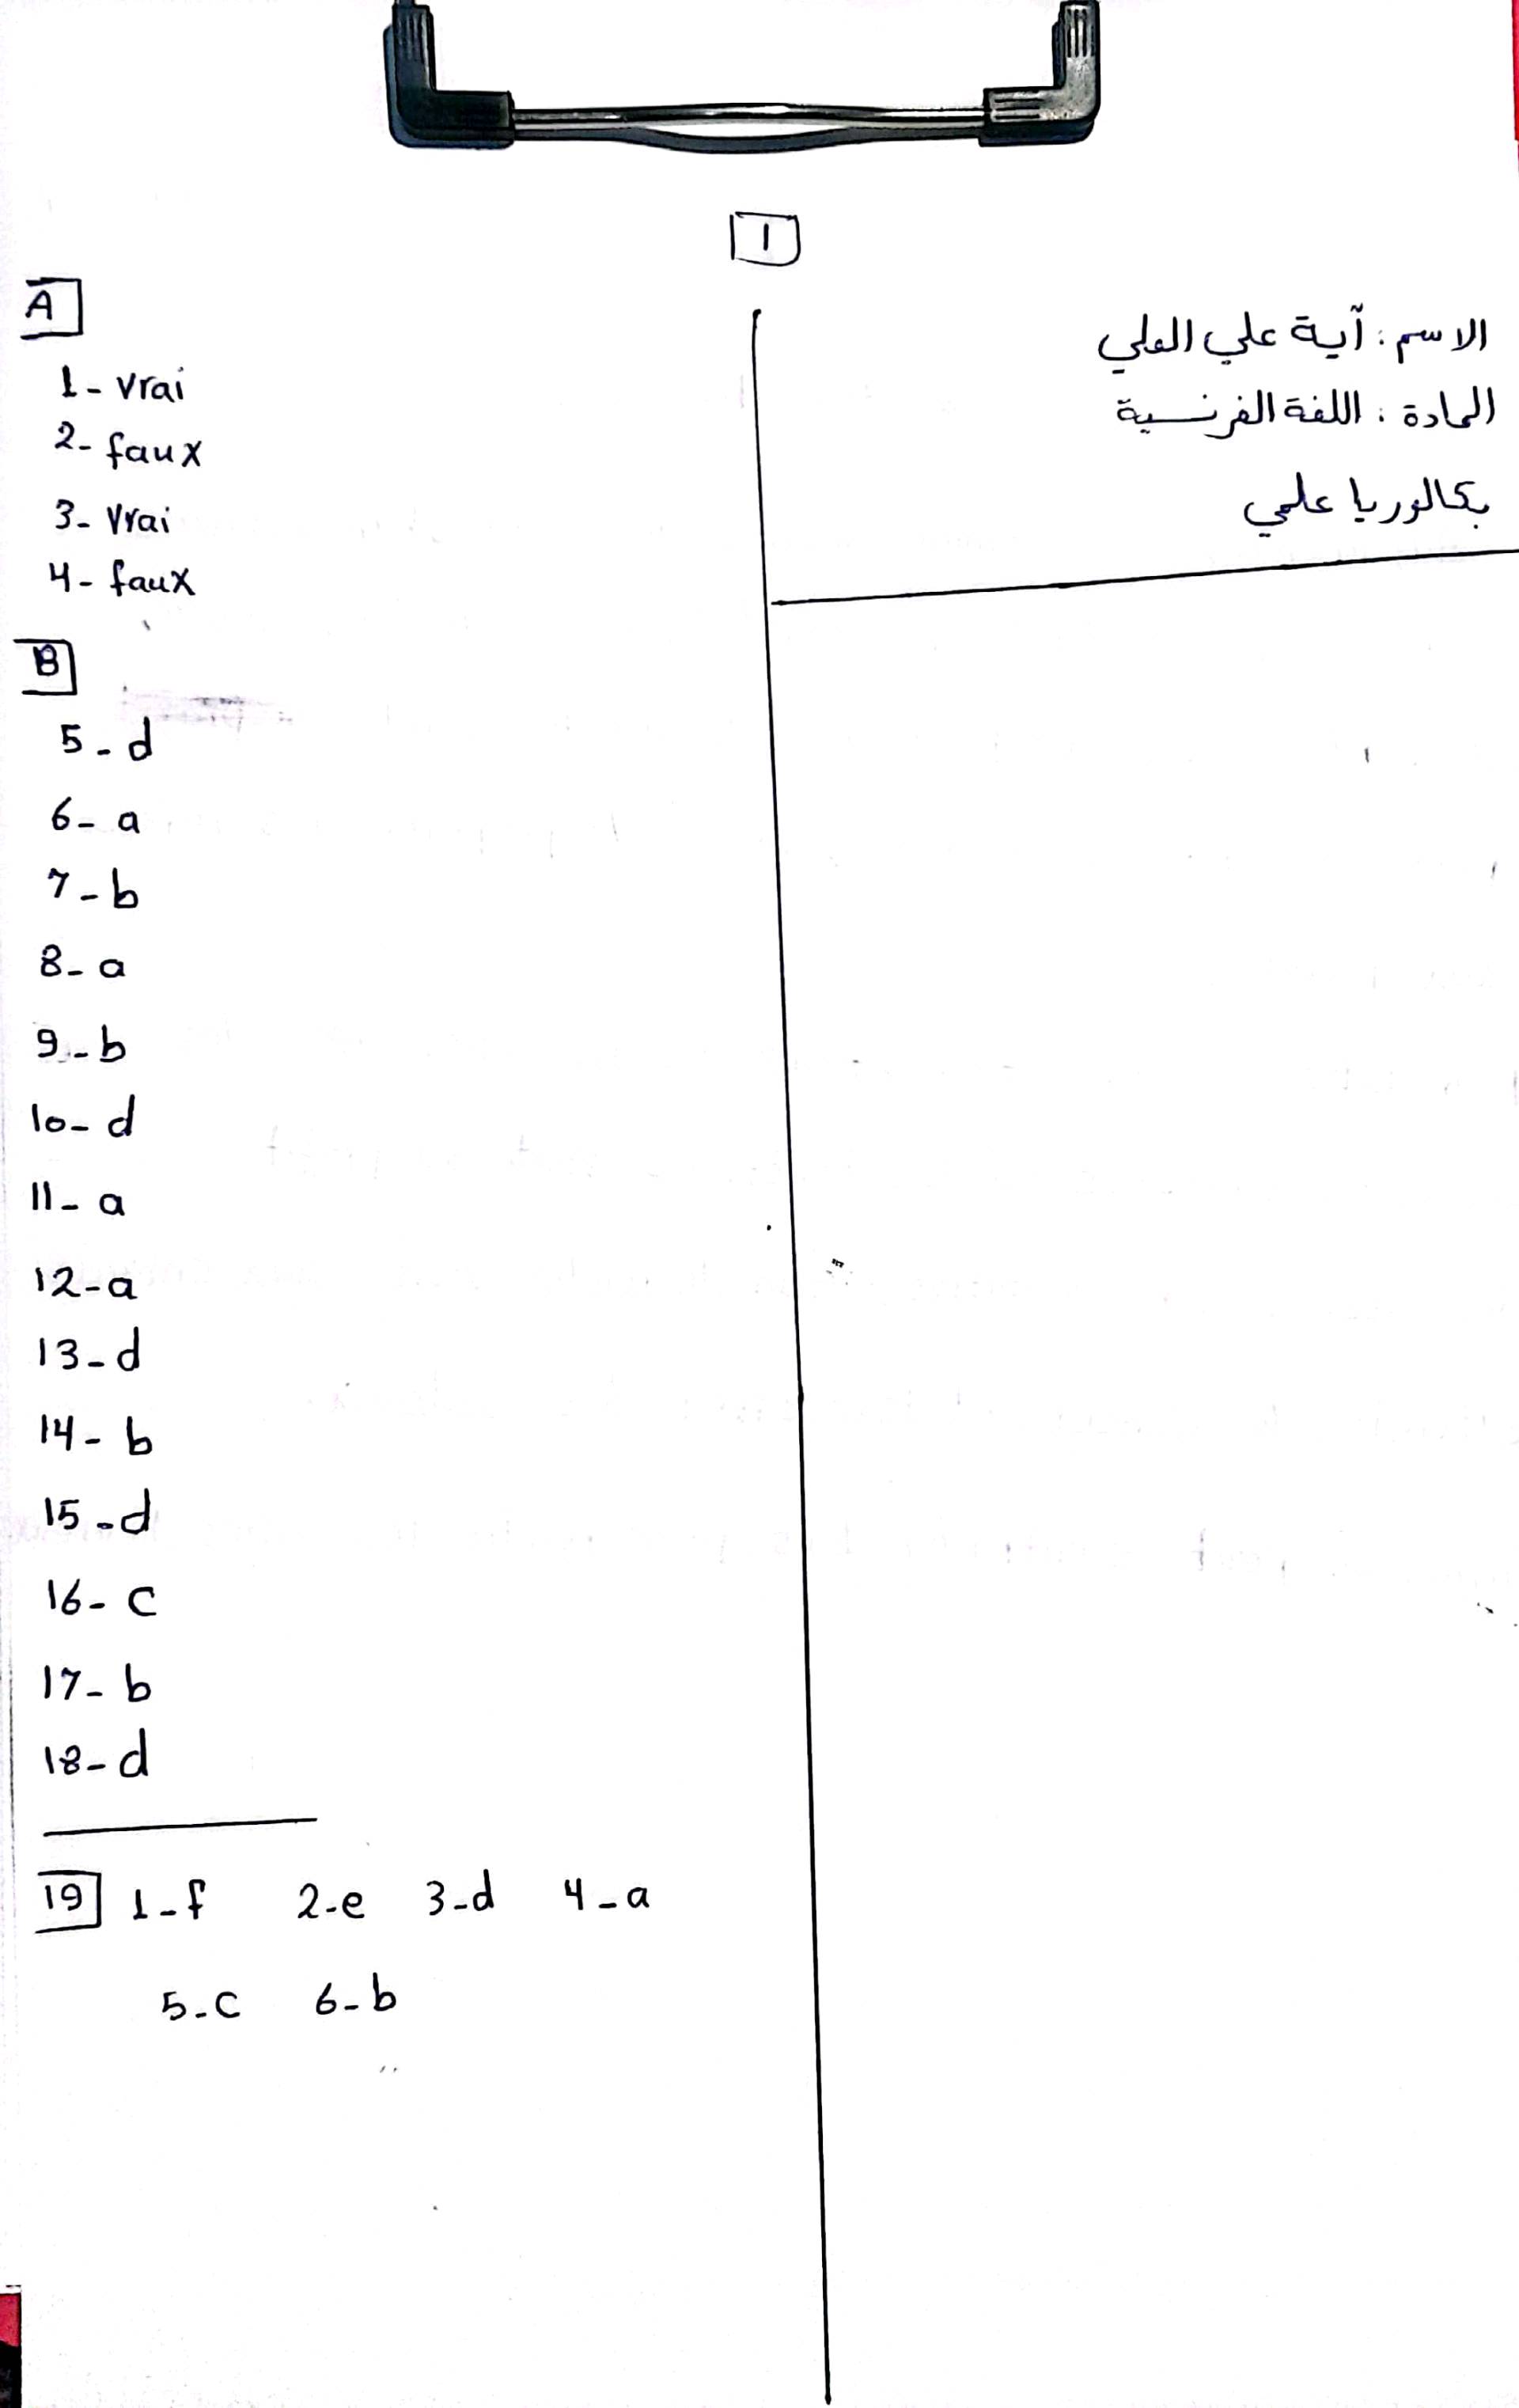 1
الاسم: آية علي العلي
المادة: اللغة الفرنسية
بكالوريا علمي
A
1- vrai
2- faux
3- vrai
4- faux
B
5-d
6-a
7-b
8-a
9-b
10-d
11-a
12-a
13-d
14-b
15-d
16-c
17-b
18-d
19 1-f 2-e 3-d 4-a
5-c 6-b